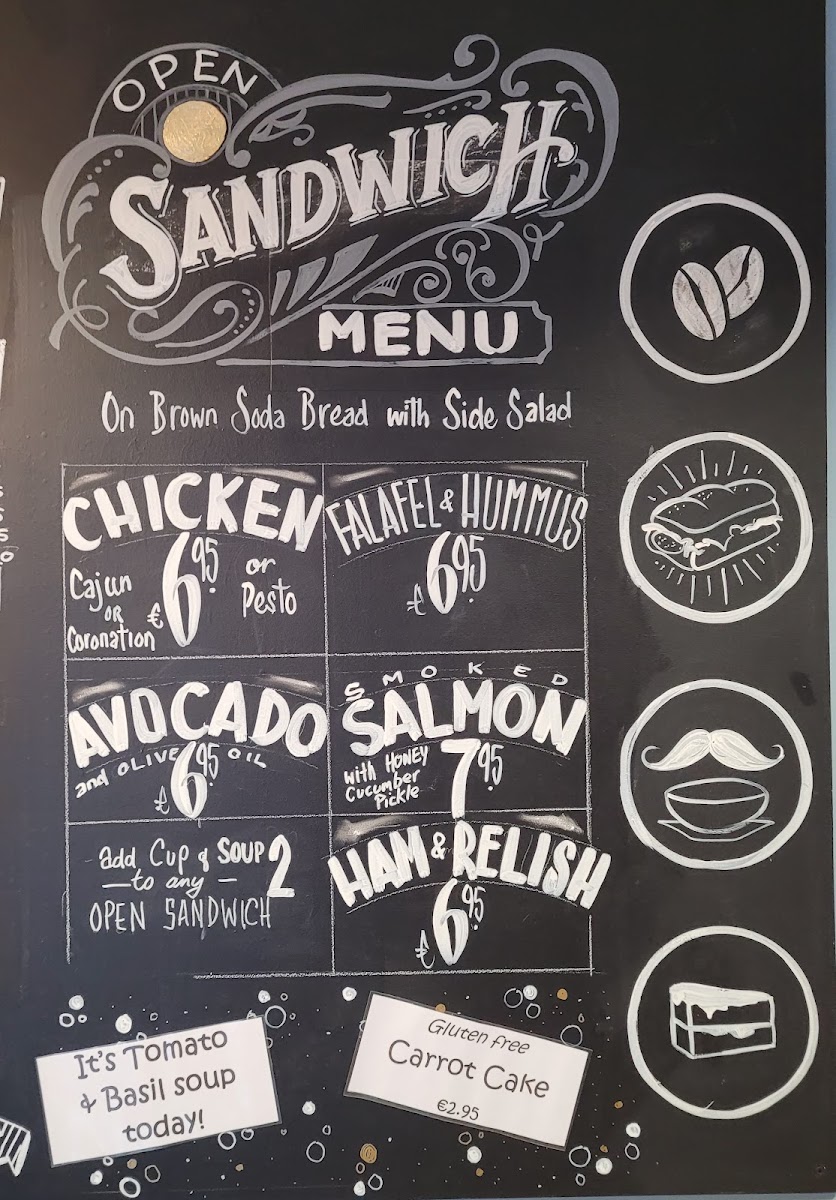 OPEN
SANDWICH
MENU
On Brown Soda Bread with Side Salad
CHICKEN
Cajun
OR
Coronation
€6.95
or
Pesto
FALAFEL & HUMMUS
€6.95
AVOCADO
and OLIVE OIL
€6.95
SMOKED
SALMON
with HONEY
Cucumber
Pickle
7.95
add Cup of SOUP 2
—to any—
OPEN SANDWICH
HAM & RELISH
€6.95
It's Tomato
& Basil soup
today!
Gluten free
Carrot Cake
€2.95